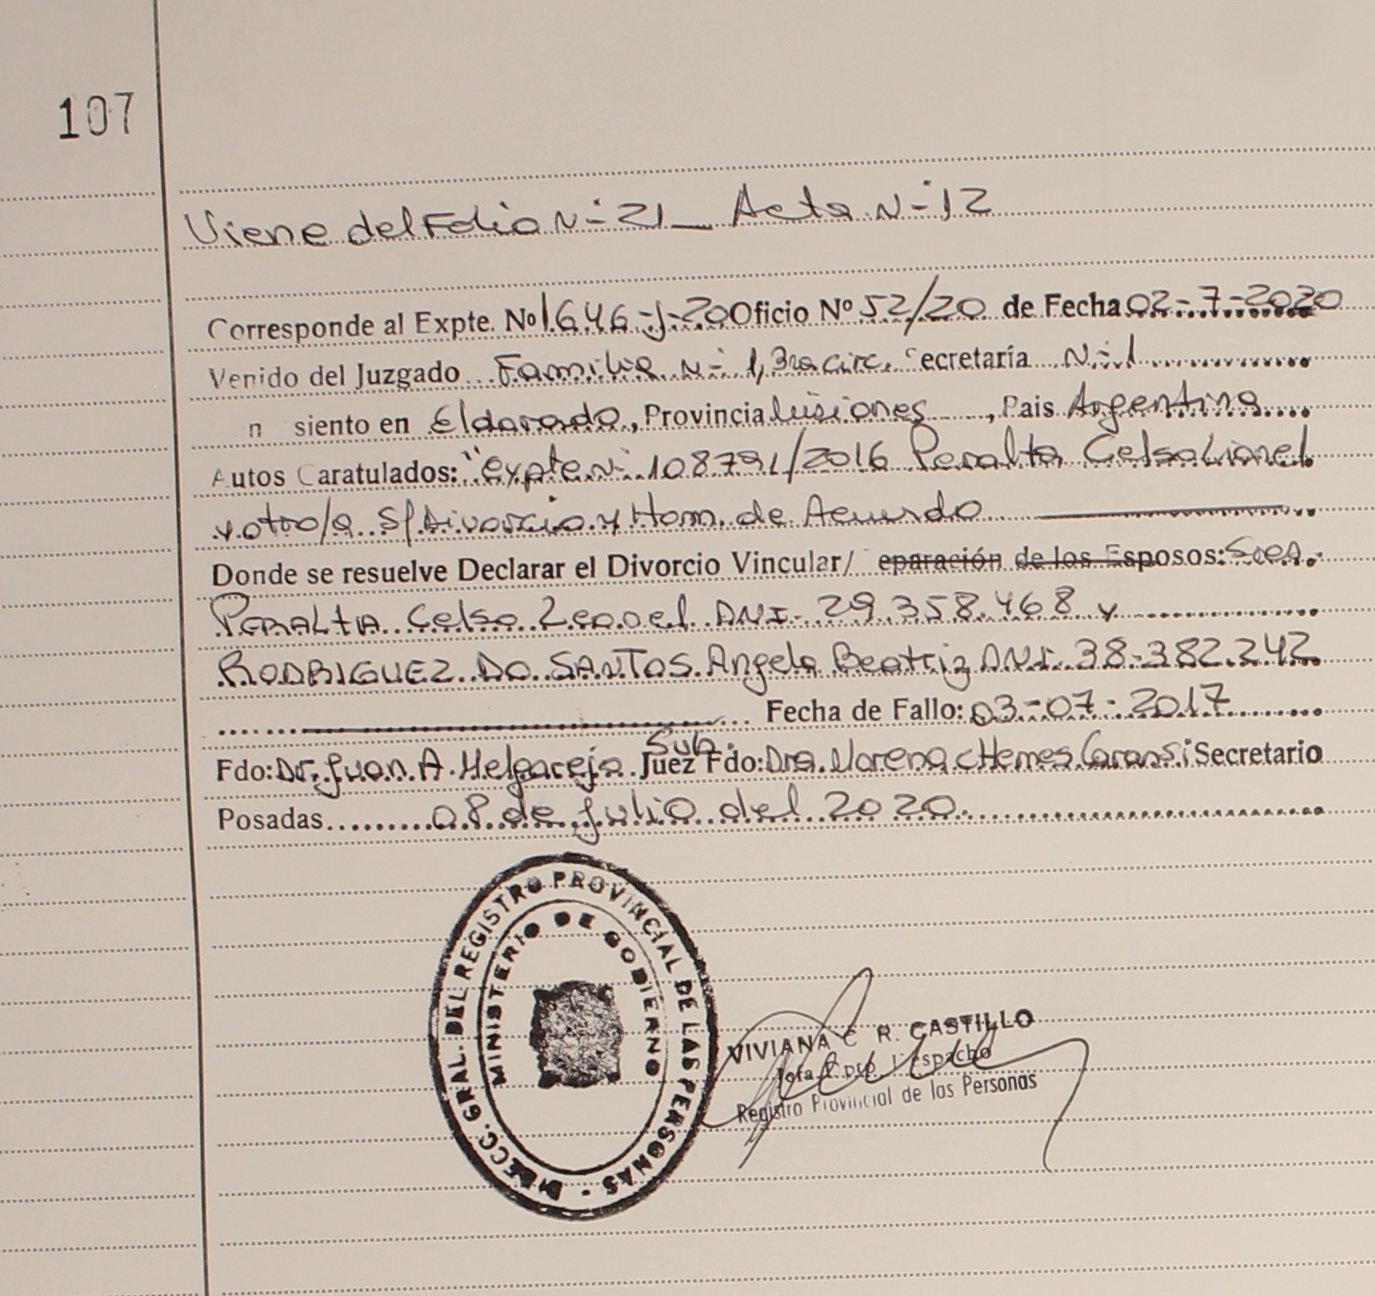 107
Viene del Folio N- 21_ Acta N- 12
Corresponde al Expte. Nº 1646-J-20 Oficio Nº 52/20 de Fecha 02-7-2020
Venido del Juzgado Familia N- 1, 3ra circ. ecretaría N- 1
n siento en Eldorado, Provincia Misiones, Pais Argentina
Autos Caratulados: "Expte N- 108791/2016 Peralta Celso Lionel
y otro/a S/Divorcio y Hom. de Acuerdo
Donde se resuelve Declarar el Divorcio Vincular/ eparación de los Esposos: Sres.
PERALTA Celso Leonel DNI- 29.358.468 y
RODRIGUEZ DO SANTOS Angela Beatriz DNI. 38-382.242
Fecha de Fallo: 03-07-2017
Sub.
Fdo: Dr. Juan A. Helgareja Juez Fdo: Dra. Morena Secretario
Posadas 08 de Julio del 2020.
DIRECC. GRAL. DEL REGISTRO PROVINCIAL DE LAS PERSONAS -
MINISTERIO DE GOBIERNO
VIVIANA C R. CASTILLO
Jefa Dpto. Despacho
Registro Provincial de las Personas